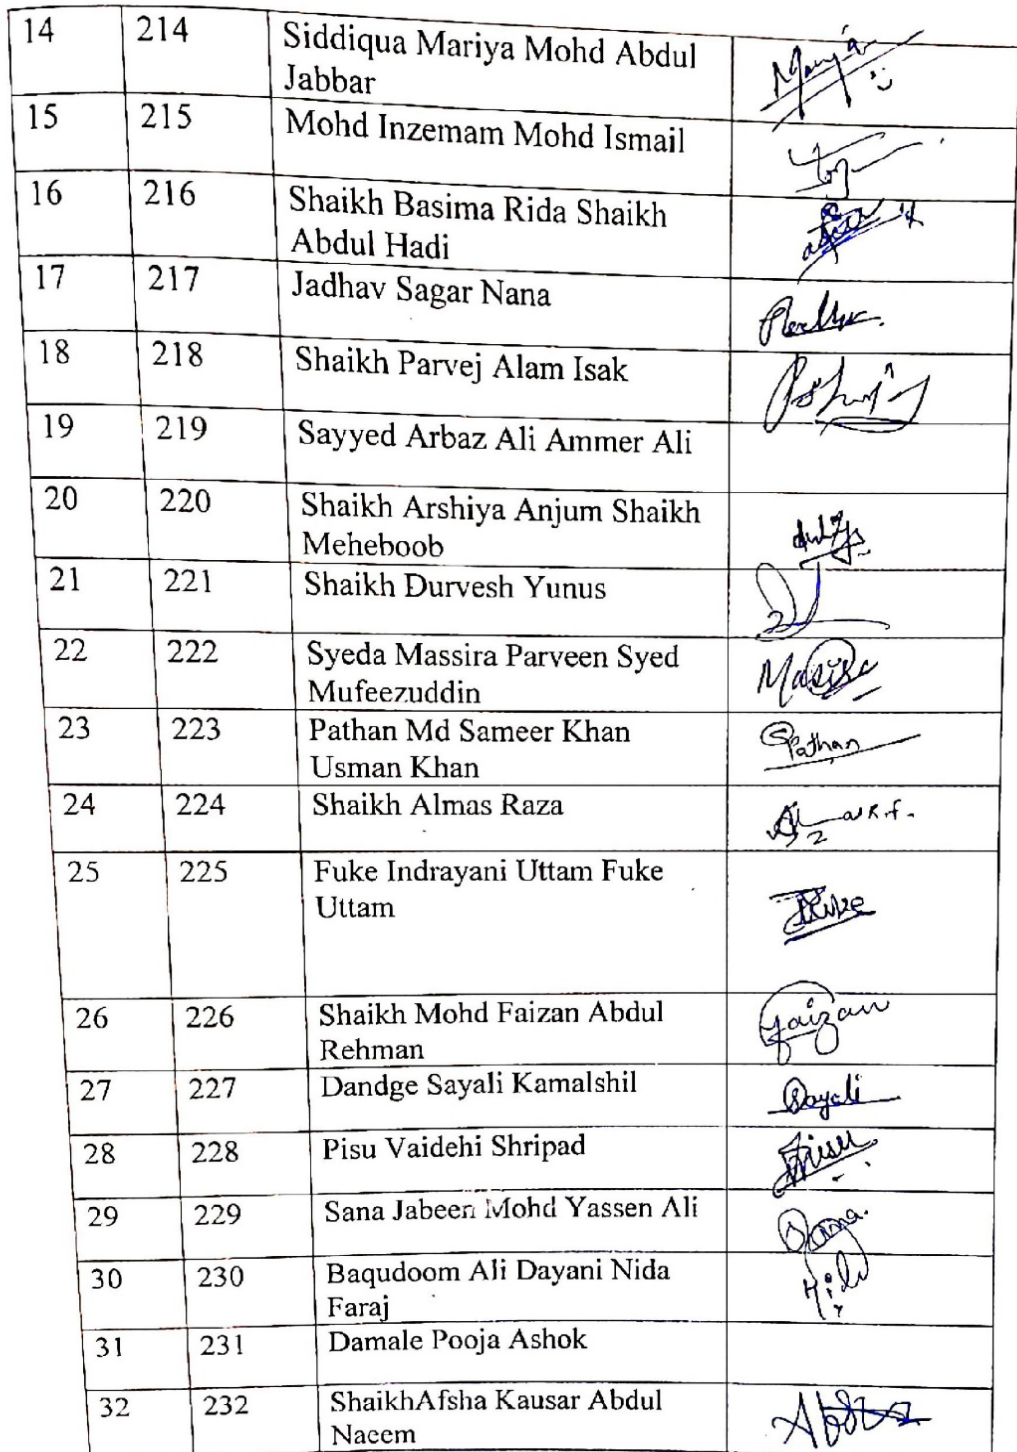 14 214 Siddiqua Mariya Mohd Abdul
Jabbar
15 215 Mohd Inzemam Mohd Ismail
16 216 Shaikh Basima Rida Shaikh
Abdul Hadi
17 217 Jadhav Sagar Nana
18 218 Shaikh Parvej Alam Isak
19 219 Sayyed Arbaz Ali Ammer Ali
20 220 Shaikh Arshiya Anjum Shaikh
Meheboob
21 221 Shaikh Durvesh Yunus
22 222 Syeda Massira Parveen Syed
Mufeezuddin
23 223 Pathan Md Sameer Khan
Usman Khan
Pathan
24 224 Shaikh Almas Raza
25 225 Fuke Indrayani Uttam Fuke
Uttam
26 226 Shaikh Mohd Faizan Abdul
Rehman
Faizan
27 227 Dandge Sayali Kamalshil
Sayali
28 228 Pisu Vaidehi Shripad
29 229 Sana Jabeen Mohd Yassen Ali
Sana
30 230 Baqudoom Ali Dayani Nida
Faraj
31 231 Damale Pooja Ashok
32 232 ShaikhAfsha Kausar Abdul
Naeem